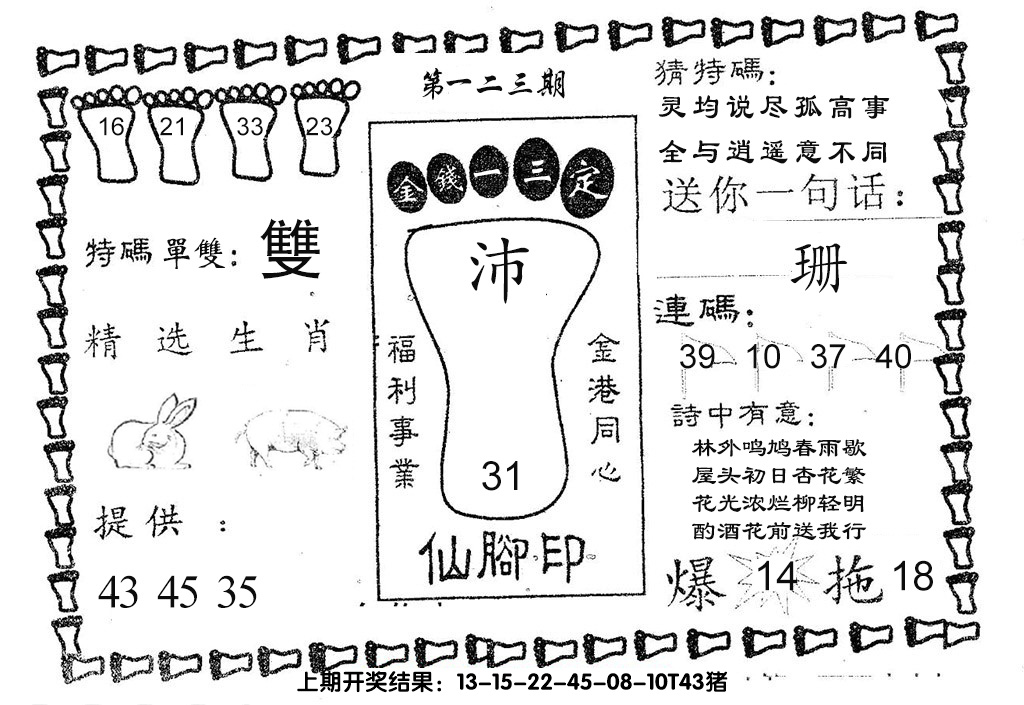 第一二三期
16 21 33 23
特碼單雙：雙
精选生肖
提供：
43 45 35
金錢一三定
沛
福利事業
金港同心
31
仙腳印
猜特碼：
灵均说尽孤高事
全与逍遥意不同
送你一句话：
珊
連碼：
39 10 37 40
詩中有意：
林外鸣鸠春雨歇
屋头初日杏花繁
花光浓烂柳轻明
酌酒花前送我行
爆 14 拖 18
上期开奖结果：13-15-22-45-08-10T43猪